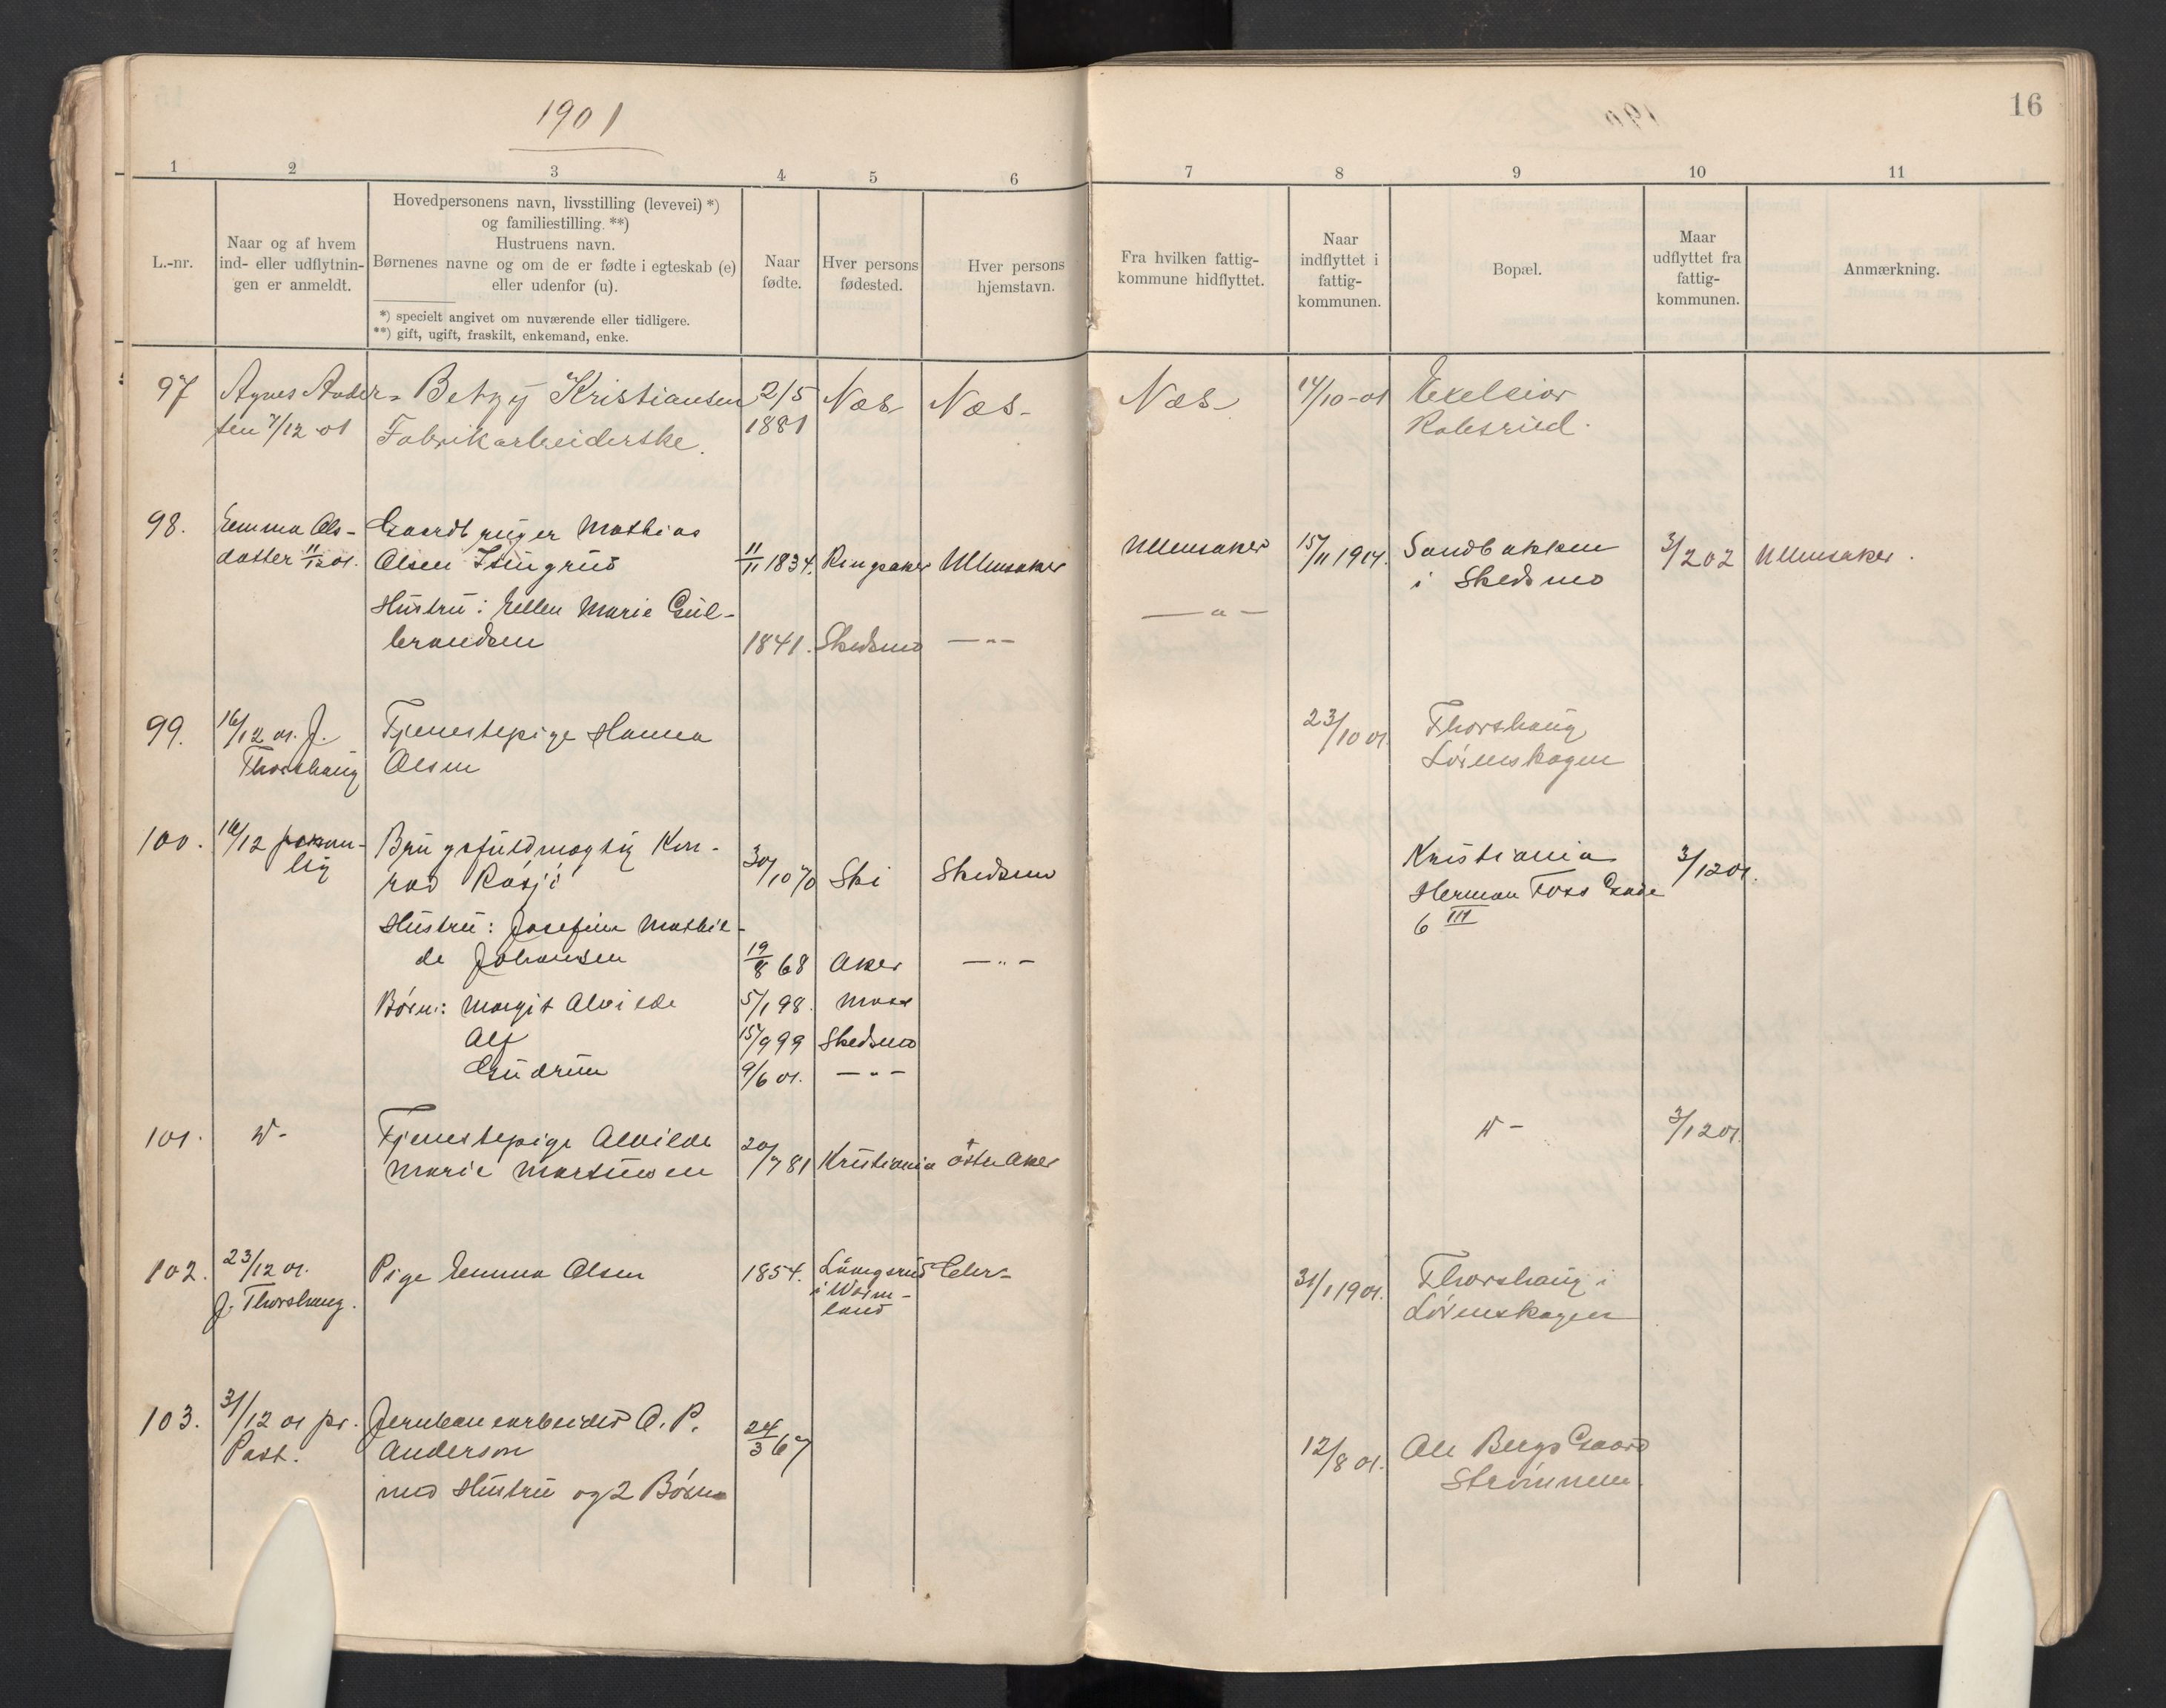 1901
16
1 2 3 4 5 6 7 8 9 10 11
L.-nr.
Naar og af hvem
ind- eller udflytnin-
gen er anmeldt.
Hovedpersonens navn, livsstilling (levevei) *)
og familiestilling. **)
Hustruens navn.
Børnenes navne og om de er fødte i egteskab (e)
eller udenfor (u).
*) specielt angivet om nuværende eller tidligere.
**) gift, ugift, fraskilt, enkemand, enke.
Naar
fødte.
Hver persons
fødested.
Hver persons
hjemstavn.
Fra hvilken fattig-
kommune hidflyttet.
Naar
indflyttet i
fattig-
kommunen.
Bopæl.
Maar
udflyttet fra
fattig-
kommunen.
Anmærkning.
97 Agnes Ander- Betzy Kristiansen 2/5 Næs Næs- Næs- 14/10-01 Exelsior
sen 7/12 01 Fabrikarbeiderske. 1881 Robsrud.
98. Emma Ols- Gaardbruger Mathias
datter 11/12 01. Olsen 11/11 1834. Ringsaker Ullensaker Ullensaker 15/11 1901. Sandbakken 3/2 02 Ullensaker.
i Skedsmo
Hustru: Ellen Marie Gul- — " —
brandsen 1841. Skedsmo — " —
99. 16/12 01. J. Tjenestepige Hanna 23/10 01 Thorshaug
Thorshaug Olsen Lørenskogen
100. 16/12 person- Brugsfuldmægtig Kon-
lig rad 30/10 70 Ski Skedsmo Kristiania 3/12 01.
Herman Foss Gade
6 III
Hustru: Josefine Mathil-
de Johansen 19/8 68 Aker — " —
Børn: Margit Alvilde 5/1 98. Moss
Alf 15/9 99 Skedsmo
Gudrun 9/6 01. — " —
101. Tjenestepige Alvilde 3/12 01.
Marie Martinsen 20/7 81 Kristiania Østre Aker
102. 23/12 01. Pige Emma Olsen 1854. 31/1 1901. Thorshaug i
J. Thorshaug. i Værm- Lørenskogen
land
103. 31/12 01 pr. Jernbanearbeider O. P.
Post. Anderson 24/3 67 12/8 01. Ole Bergs Gaard
med Hustru og 2 Børn Strømmen.